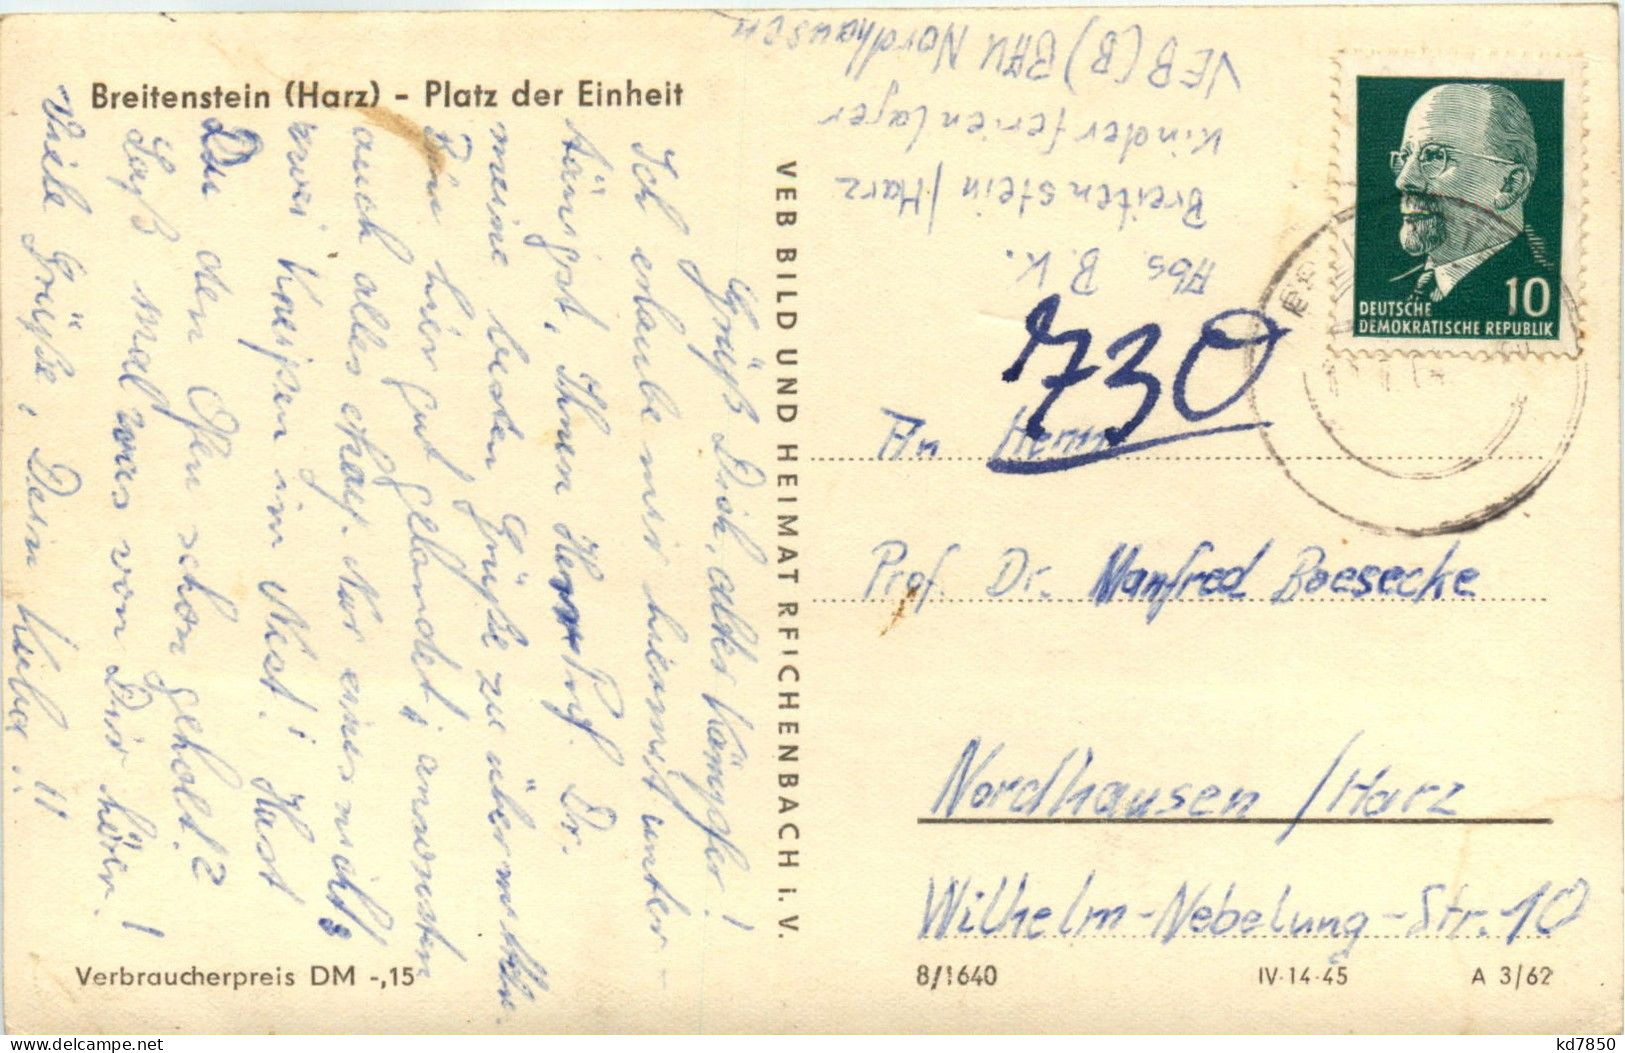 Breitenstein (Harz) - Platz der Einheit
Grüß Dich, altes Kämpfer!
Ich erlaube mir hiermit unter-
tänigst, Ihnen Herr Prof. Dr.
meine besten Grüße zu übermitteln.
Bin hier gut gelandet; ansonsten
auch alles okay. Nur eines nicht:
zwei Kneipen im Nest! Hast
Du den Ofen schon geholt?
Laß mal was von Dir hören!
Viele Grüße, Dein
VEB BILD UND HEIMAT REICHENBACH i. V.
Abs. B. K.
Breitenstein / Harz
Kinderferienlager
VEB (B) BAU Nordhausen
DEUTSCHE
DEMOKRATISCHE REPUBLIK
10
1730
An Herrn
Prof. Dr. Manfred Boesecke
Nordhausen / Harz
Wilhelm-Nebelung-Str. 10
Verbraucherpreis DM -,15
8/1640 IV-14-45 A 3/62
kd7850